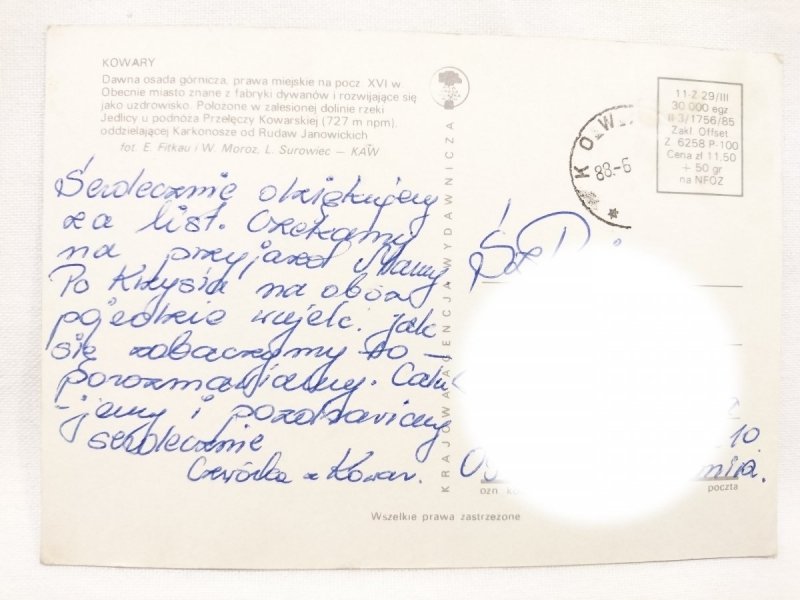 KOWARY
Dawna osada górnicza, prawa miejskie na pocz. XVI w.
Obecnie miasto znane z fabryki dywanów i rozwijające się
jako uzdrowisko. Położone w zalesionej dolinie rzeki
Jedlicy u podnóża Przełęczy Kowarskiej (727 m npm),
oddzielającej Karkonosze od Rudaw Janowickich
fot. E. Fitkau i W. Moroz, L. Surowiec — KAW
Serdecznie dziękujemy
za list. Czekamy
na przyjazd Mamy
Po Krzysia na obóz
pojedzie wujek. Jak
się zobaczymy to –
porozmawiamy. Cału
-jemy i pozdrawiamy
serdecznie
Czwórka z Kowar.
KRAJOWA AGENCJA WYDAWNICZA
11-Z 29/III
30 000 egz
II-3/1756/85
Zakł. Offset
Z 6258 P-100
Cena zł 11.50
+ 50 gr
na NFOZ
88-6
Sz.
10
poczta
Wszelkie prawa zastrzeżone